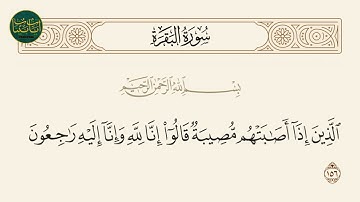 سُورَةُ البَقَرَةِ
بِسْمِ ٱللَّهِ ٱلرَّحْمَٰنِ ٱلرَّحِيمِ
ٱلَّذِينَ إِذَآ أَصَٰبَتْهُم مُّصِيبَةٌ قَالُوٓا۟ إِنَّا لِلَّهِ وَإِنَّآ إِلَيْهِ رَٰجِعُونَ
١٥٦